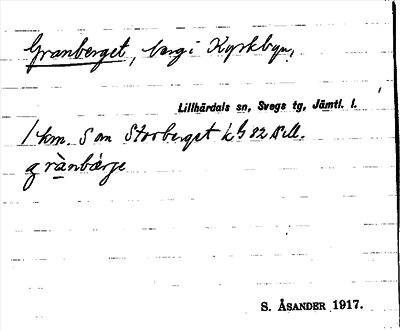 Granberget, berg i Kyrkbyn,
Lillhärdals sn, Svegs tg, Jämtl. l.
1 km. S om Storberget kG 82 Aell.
grànbærje
S. ÅSANDER 1917.